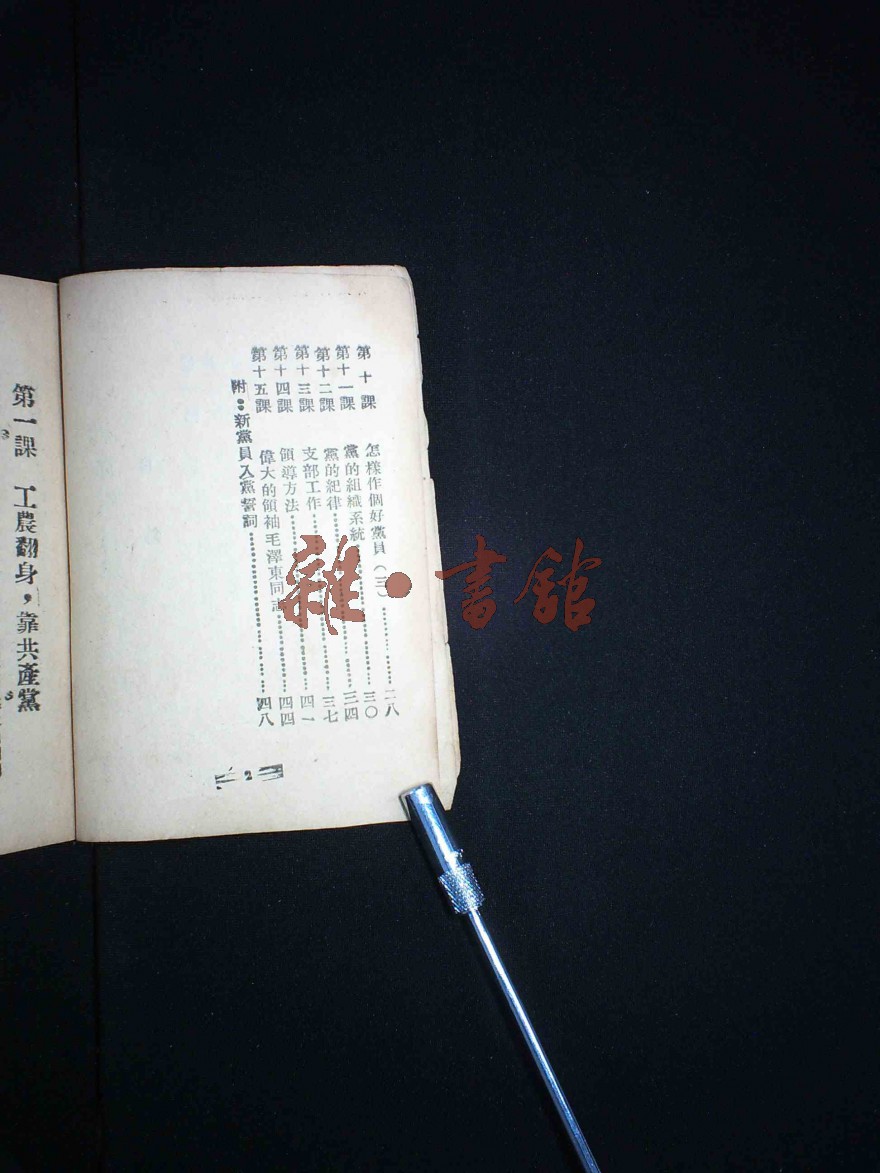 第十課　怎樣作個好黨員（三）…………二八
第十一課　黨的組織系統…………三〇
第十二課　黨的紀律…………三四
第十三課　支部工作…………三七
第十四課　領導方法…………四一
第十五課　偉大的領袖毛澤東同志…………四四
附：新黨員入黨誓詞…………四八
2
第一課　工農翻身，靠共產黨
雜·書館